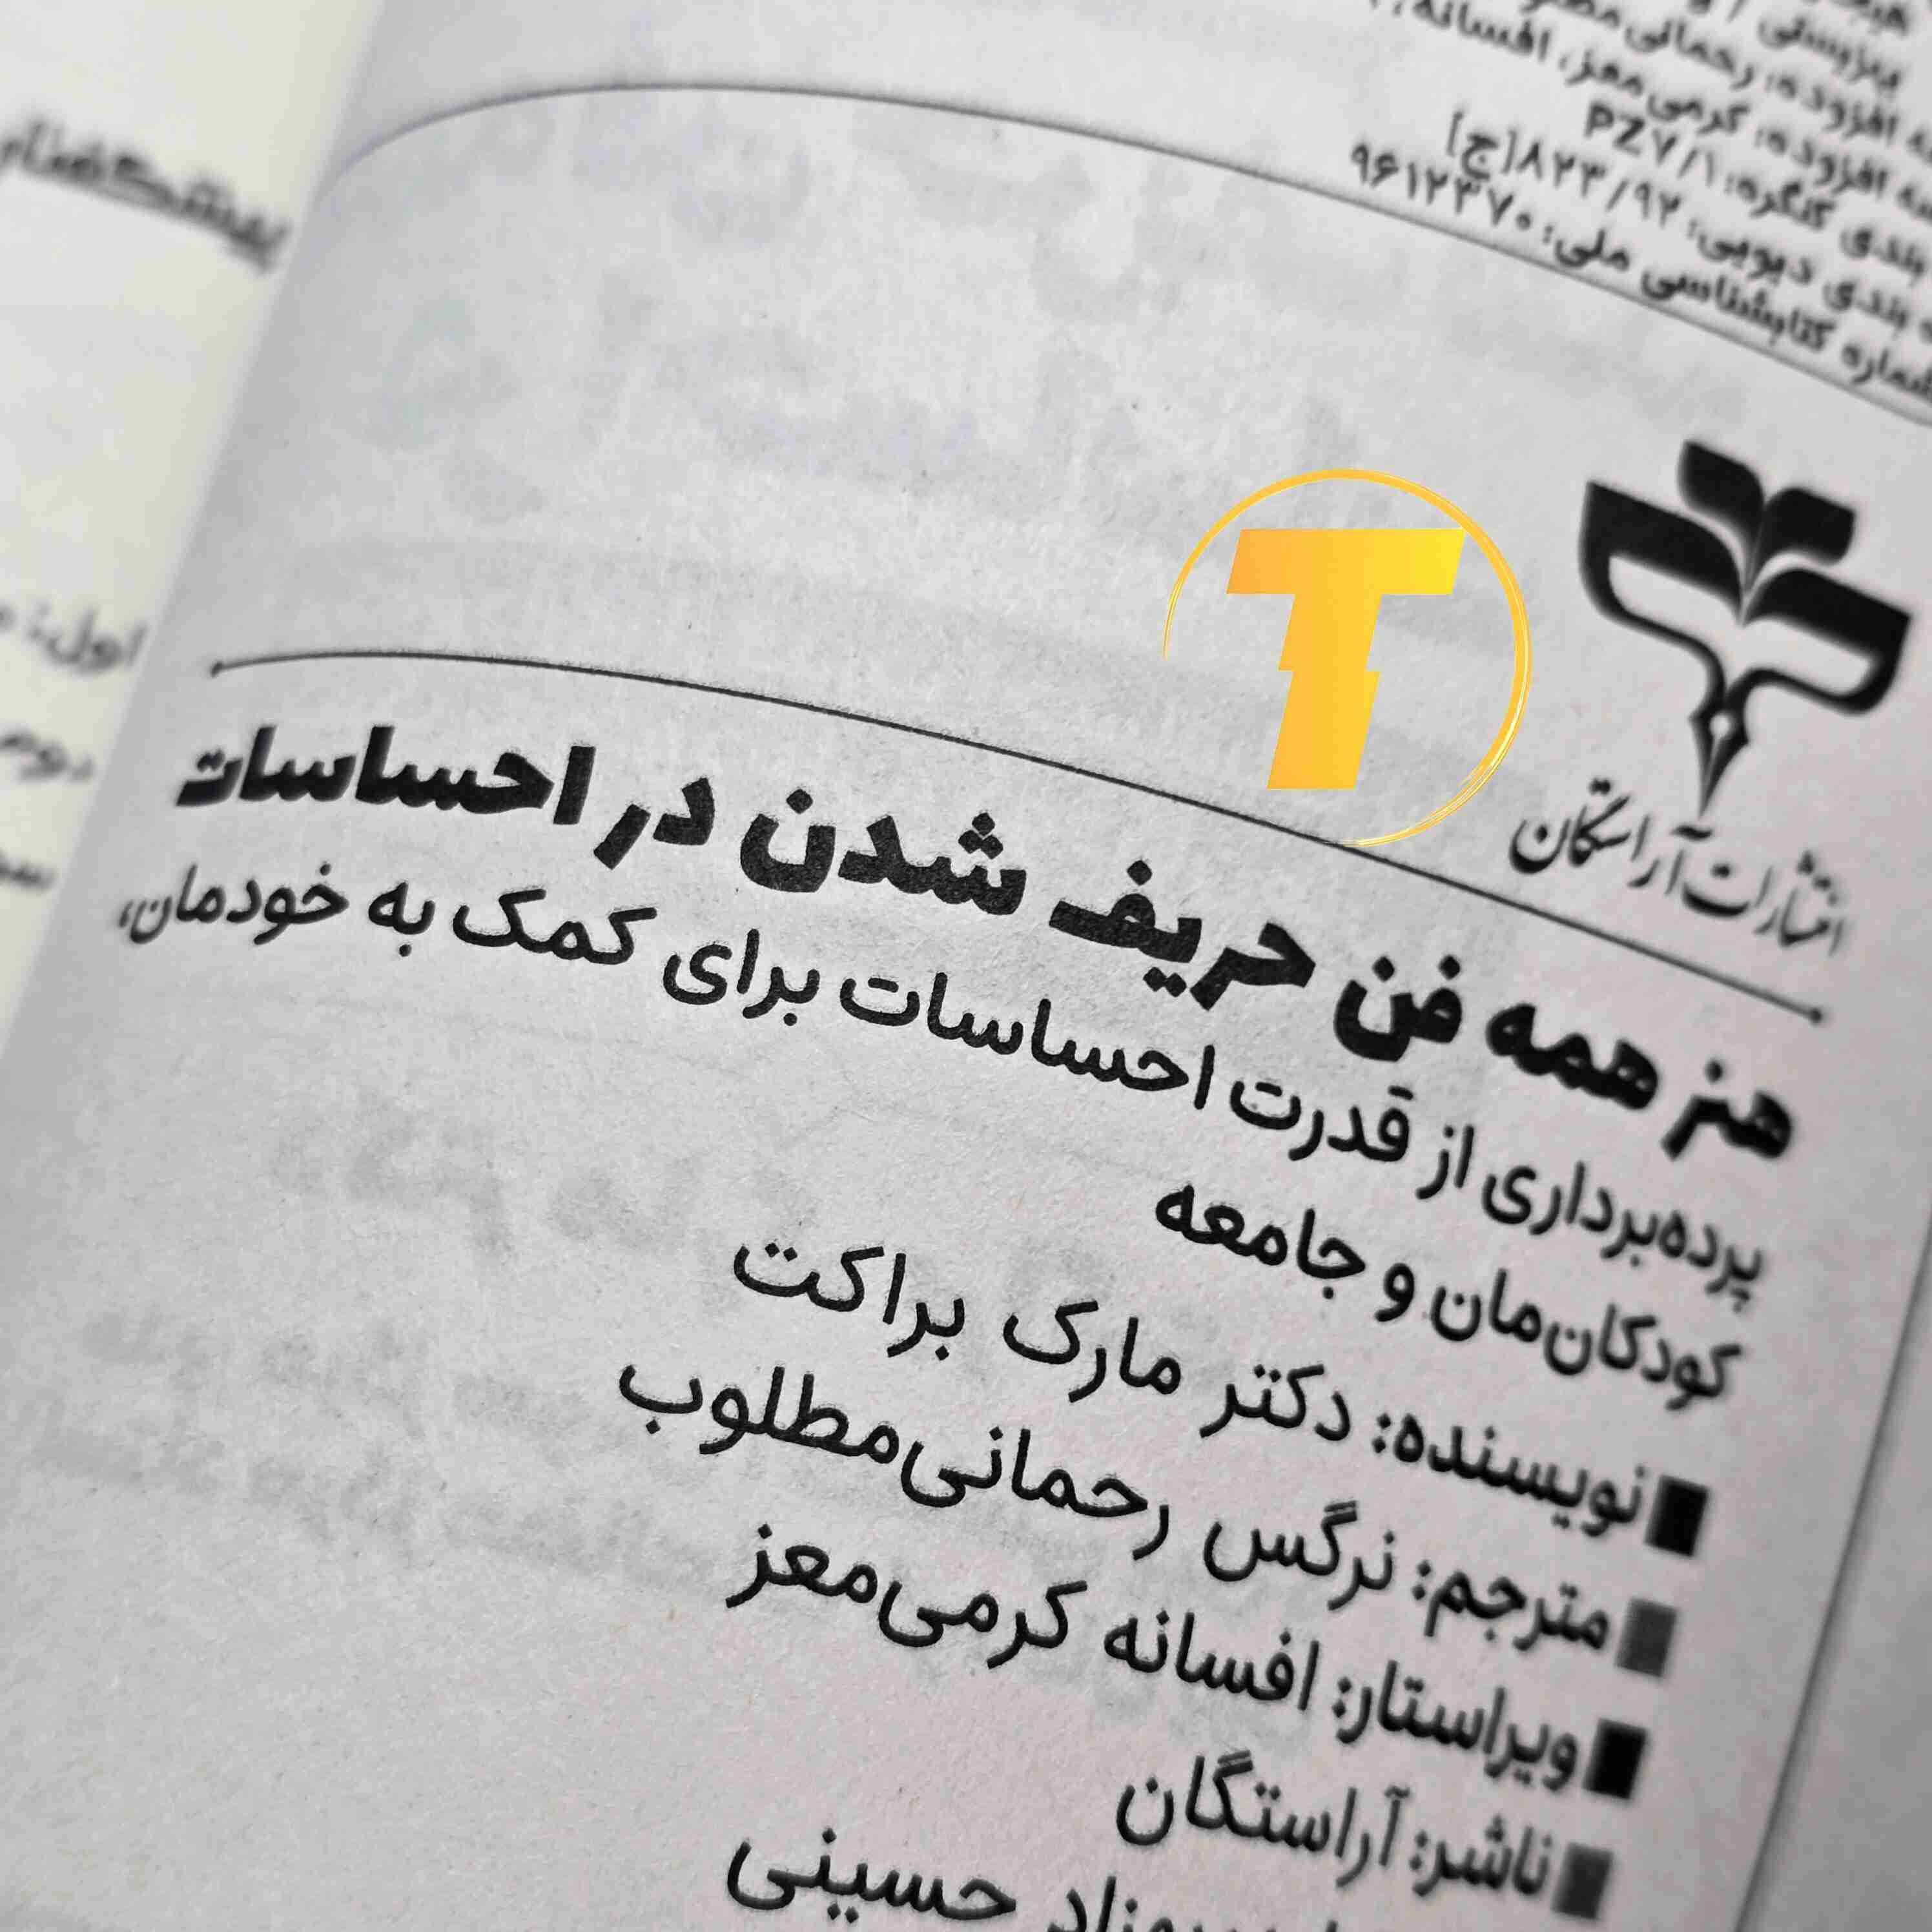 افزوده: رحمانی
افزوده: کرمی‌معز، افسانه،
بندی کنگره: PZ۷/۱
بندی دیویی: ۸۲۳/۹۲[ج]
شماره کتابشناسی ملی: ۹۶۱۲۳۷۰
انتشارات آراستگان
T
هنر همه فن حریف شدن در احساسات
پرده‌برداری از قدرت احساسات برای کمک به خودمان،
کودکان‌مان و جامعه
نویسنده: دکتر مارک براکت
مترجم: نرگس رحمانی‌مطلوب
ویراستار: افسانه کرمی‌معز
ناشر: آراستگان
حسینی
پیشگفتار
اول:
دوم